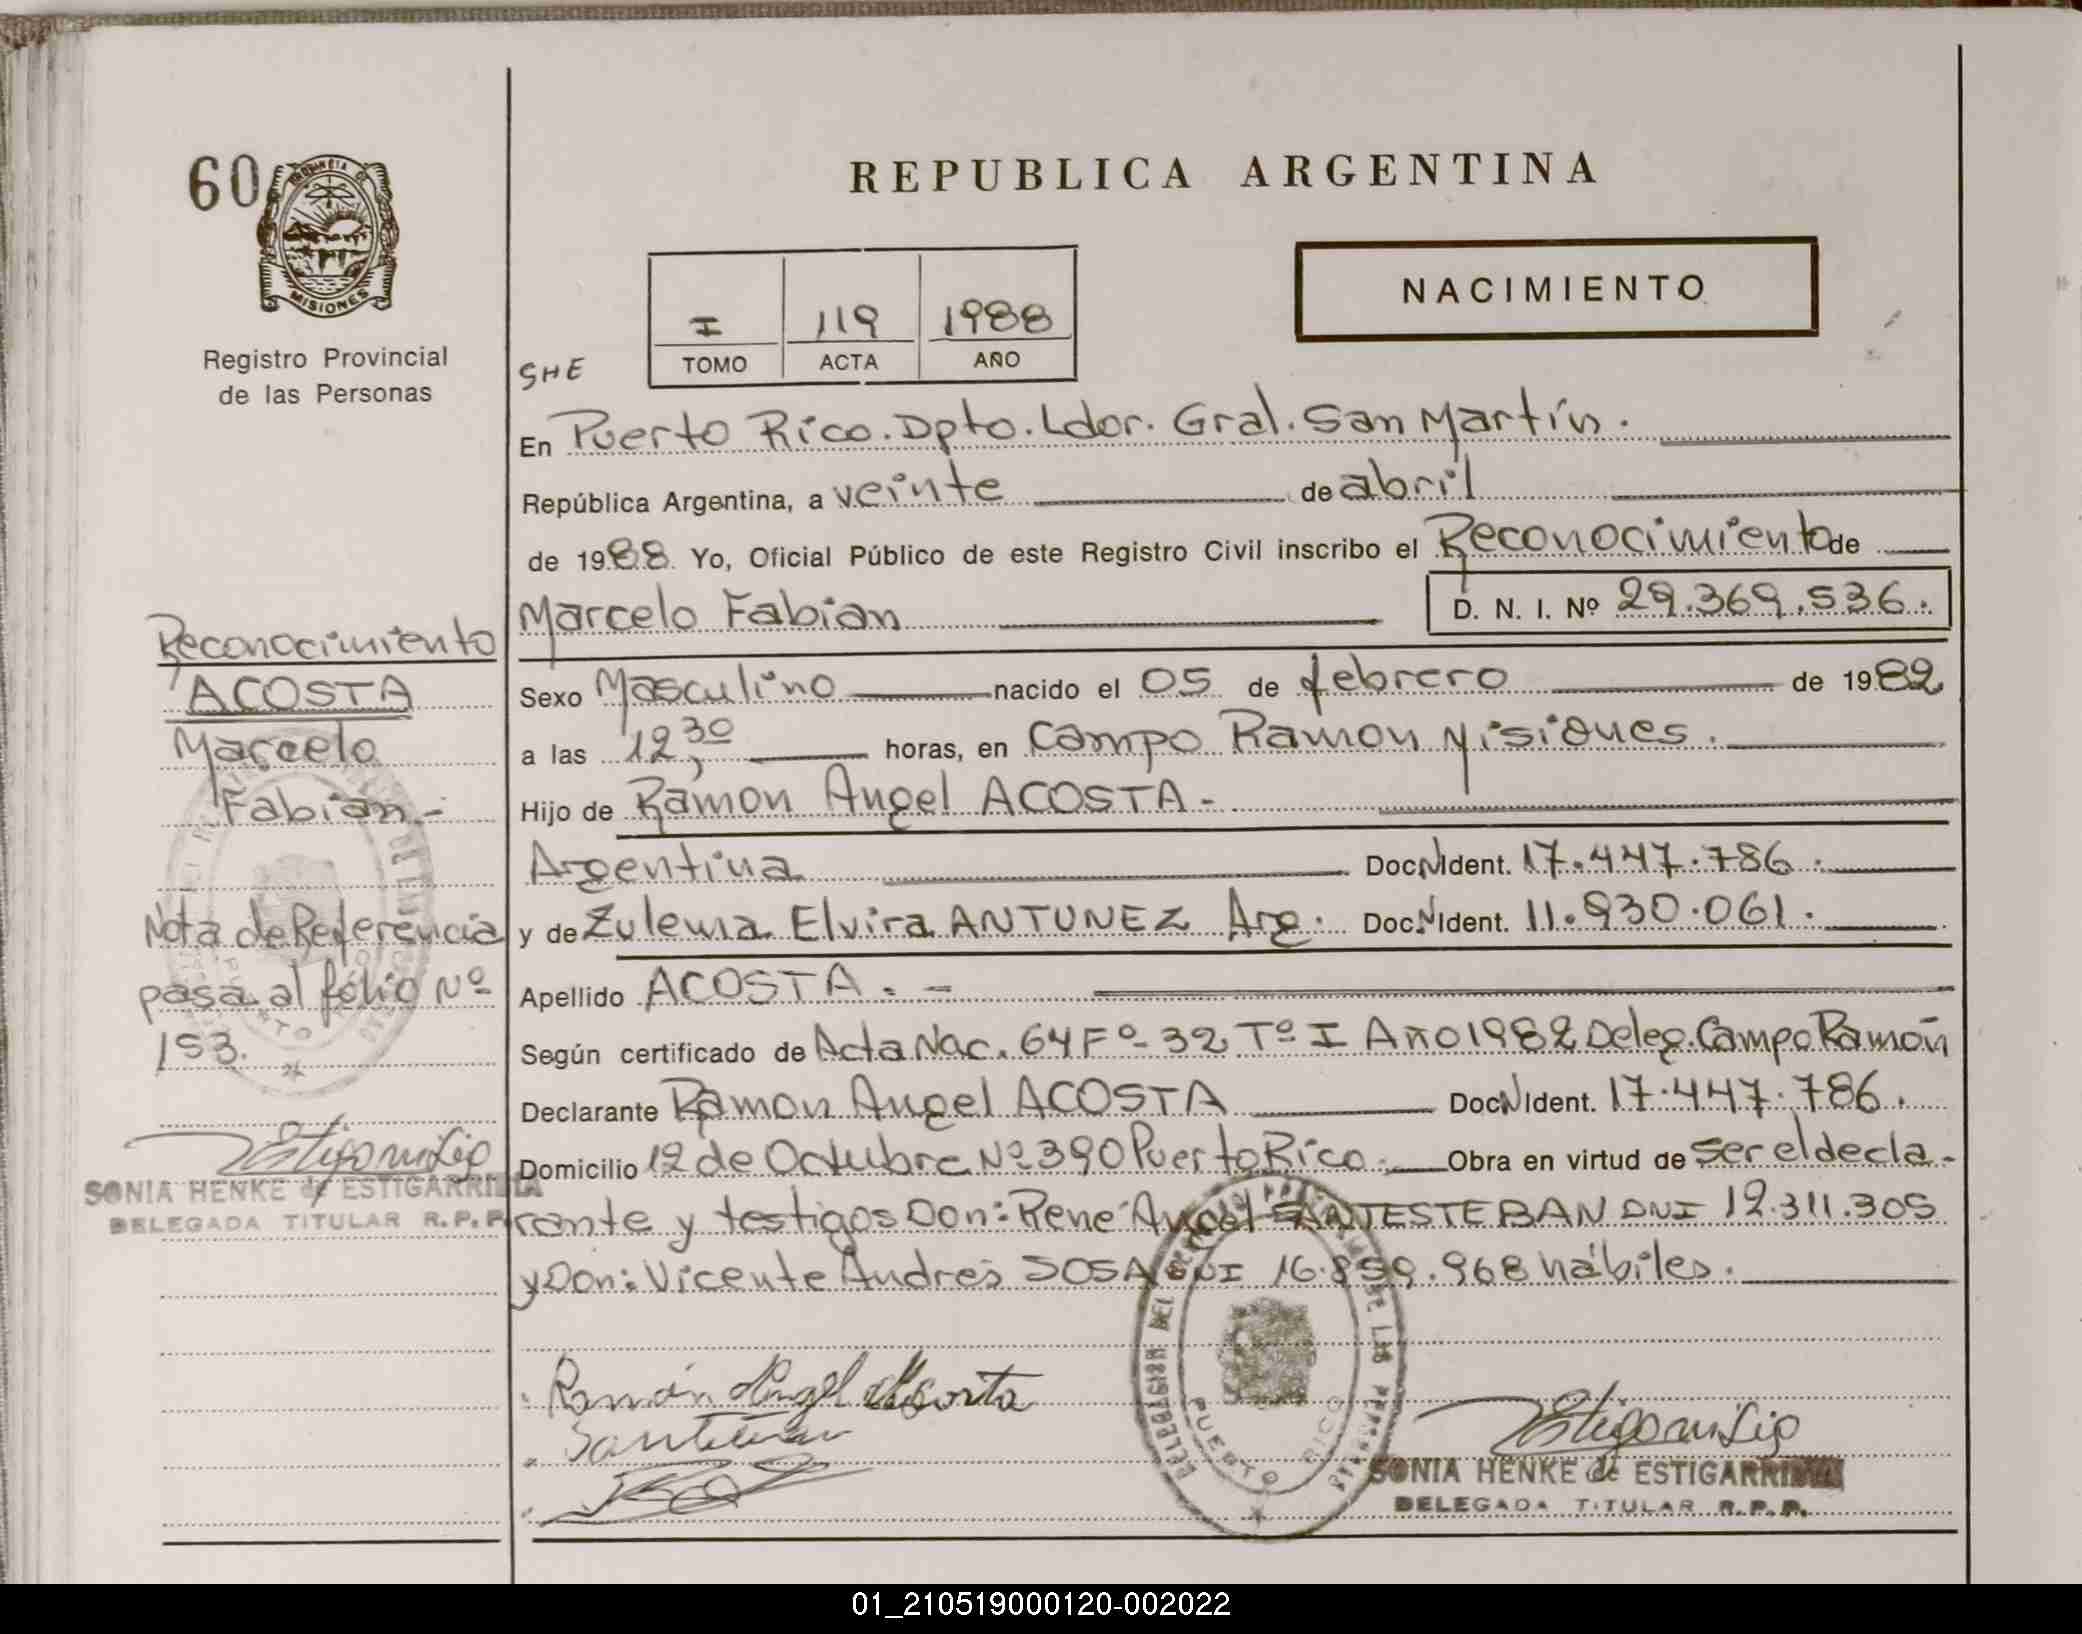 60
PROVINCIA DE
MISIONES
Registro Provincial
de las Personas
REPUBLICA ARGENTINA
I 119 1988
TOMO ACTA AÑO
NACIMIENTO
SHE
En Puerto Rico. Dpto. Ldor. Gral. San Martín.
República Argentina, a veinte de abril
de 1988. Yo, Oficial Público de este Registro Civil inscribo el Reconocimiento de
Marcelo Fabian D. N. I. Nº 29.369.536.
Sexo Masculino nacido el 05 de febrero de 1982
a las 12,30 horas, en Campo Ramon Misiones.
Hijo de Ramon Angel ACOSTA-
Argentina Doc.N.Ident. 17.447.786.
y de Zulema Elvira ANTUNEZ Arg. Doc.N.Ident. 11.930.061.
Apellido ACOSTA. -
Según certificado de Acta Nac. 64 Fº 32 Tº I Año 1982 Deleg. Campo Ramón
Declarante Ramon Angel ACOSTA Doc.N.Ident. 17.447.786.
Domicilio 12 de Octubre Nº 390 Puerto Rico. Obra en virtud de ser el decla-
rante y testigos Don: Rene Angel SANTESTEBAN DNI 12.311.305
y Don: Vicente Andres SOSA DNI 16.859.968 hábiles.
Reconocimiento
ACOSTA
Marcelo
Fabian.-
Nota de Referencia
pasa al folio Nº
153.
SONIA HENKE de ESTIGARRIBIA
DELEGADA TITULAR R.P.P.
Ramón Angel Acosta
PUERTO RICO
SONIA HENKE de ESTIGARRIBIA
DELEGADA TITULAR R.P.P.
01_210519000120-002022